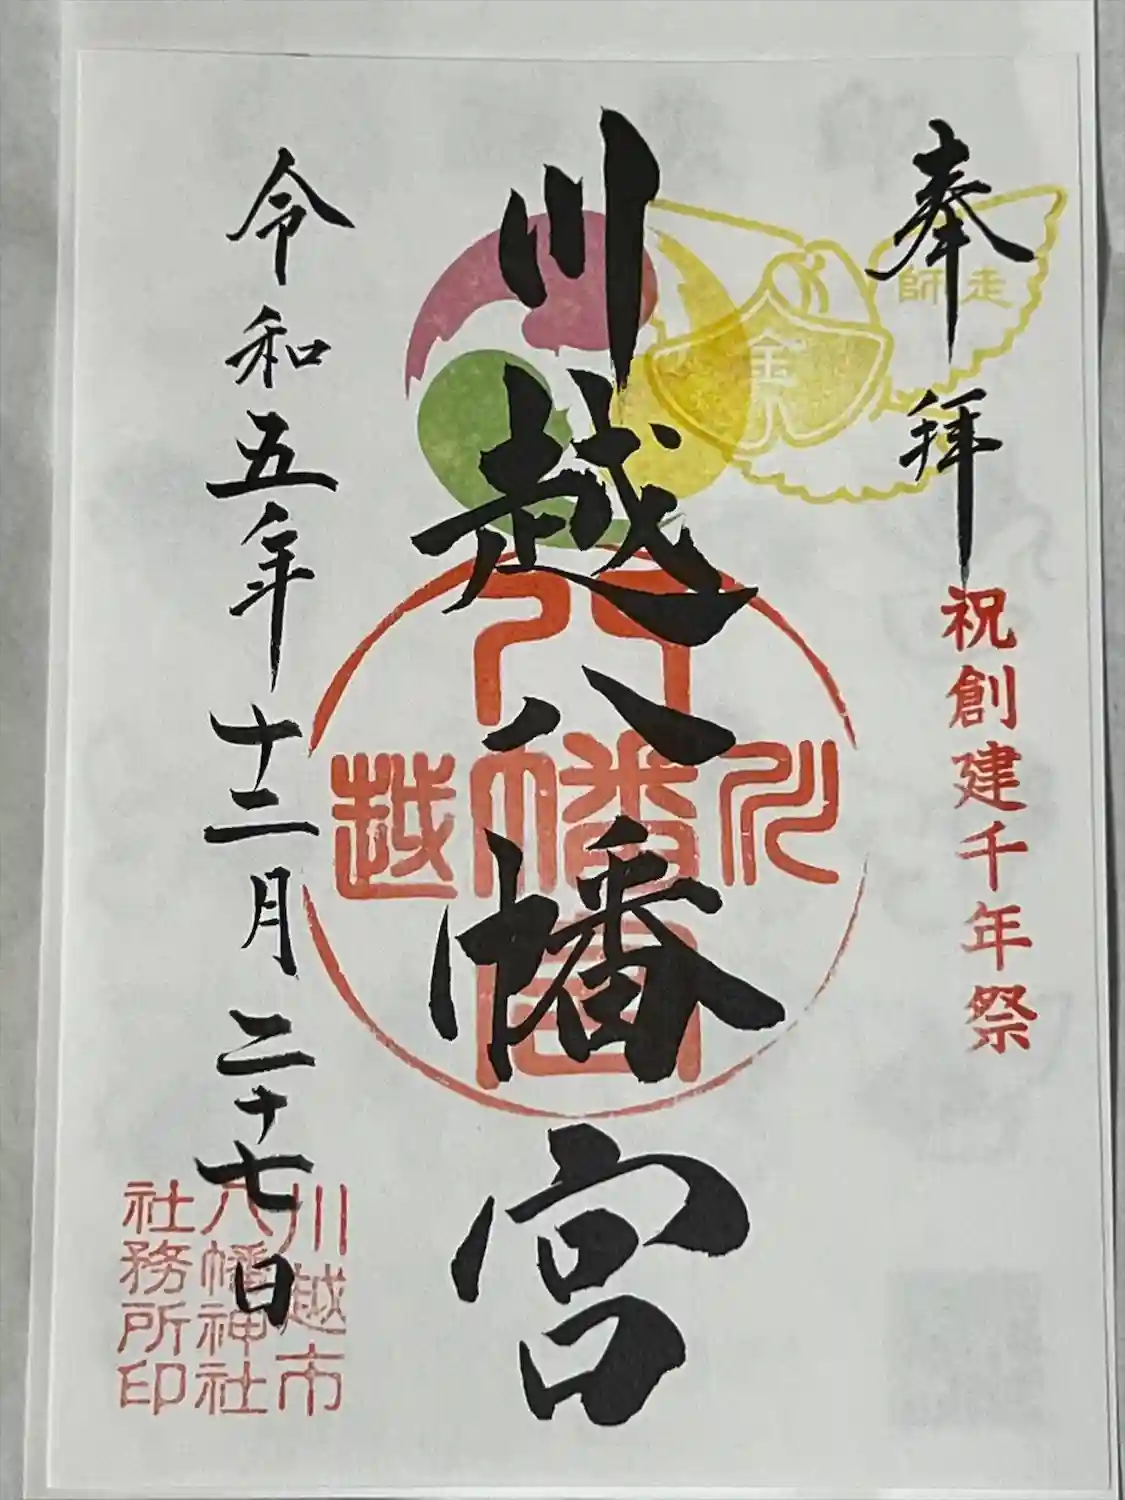 奉拝
走師
金
祝創建千年祭
川越八幡宮
川越八幡宮
令和五年十二月二十七日
川越市
八幡神社
社務所印